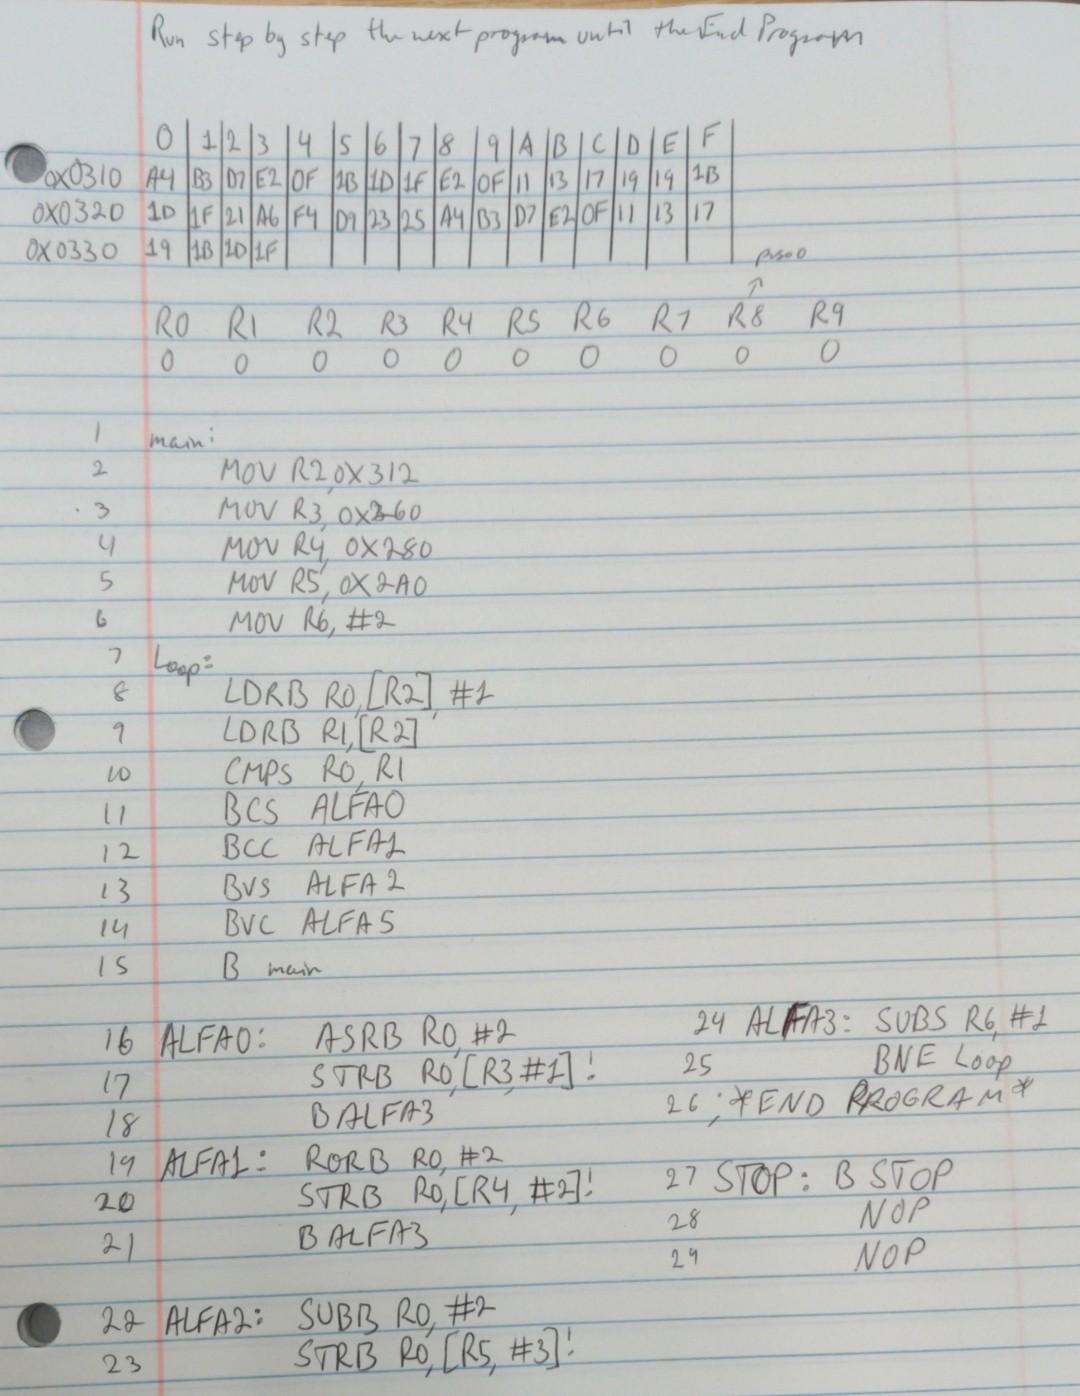 Run step by step the next program until the End Program
0 | 1 | 2 | 3 | 4 | 5 | 6 | 7 | 8 | 9 | A | B | C | D | E | F |
0x0310 A4 | B3 | D7 | E2 | 0F | 1B | 1D | 1F | E2 | 0F | 11 | 13 | 17 | 19 | 19 | 1B
0x0320 1D | 1F | 21 | A6 | F4 | D9 | 23 | 25 | A4 | B3 | D7 | E2 | 0F | 11 | 13 | 17
0x0330 19 | 1B | 1D | 1F
↑
R0 R1 R2 R3 R4 R5 R6 R7 R8 R9
0 0 0 0 0 0 0 0 0 0
1 main:
2 MOV R2, 0X312
3 MOV R3, 0X260
4 MOV R4, 0X280
5 MOV R5, 0X2A0
6 MOV R6, #2
7 Loop:
8 LDRB R0, [R2], #1
9 LDRB R1, [R2]
10 CMPS R0, R1
11 BCS ALFA0
12 BCC ALFA1
13 BVS ALFA2
14 BVC ALFA5
15 B main
16 ALFA0: ASRB R0, #2
17 STRB R0, [R3, #1]!
18 B ALFA3
19 ALFA1: RORB R0, #2
20 STRB R0, [R4, #2]!
21 B ALFA3
22 ALFA2: SUBB R0, #2
23 STRB R0, [R5, #3]!
24 ALFA3: SUBS R6, #1
25 BNE Loop
26 ; *END PROGRAM*
27 STOP: B STOP
28 NOP
29 NOP